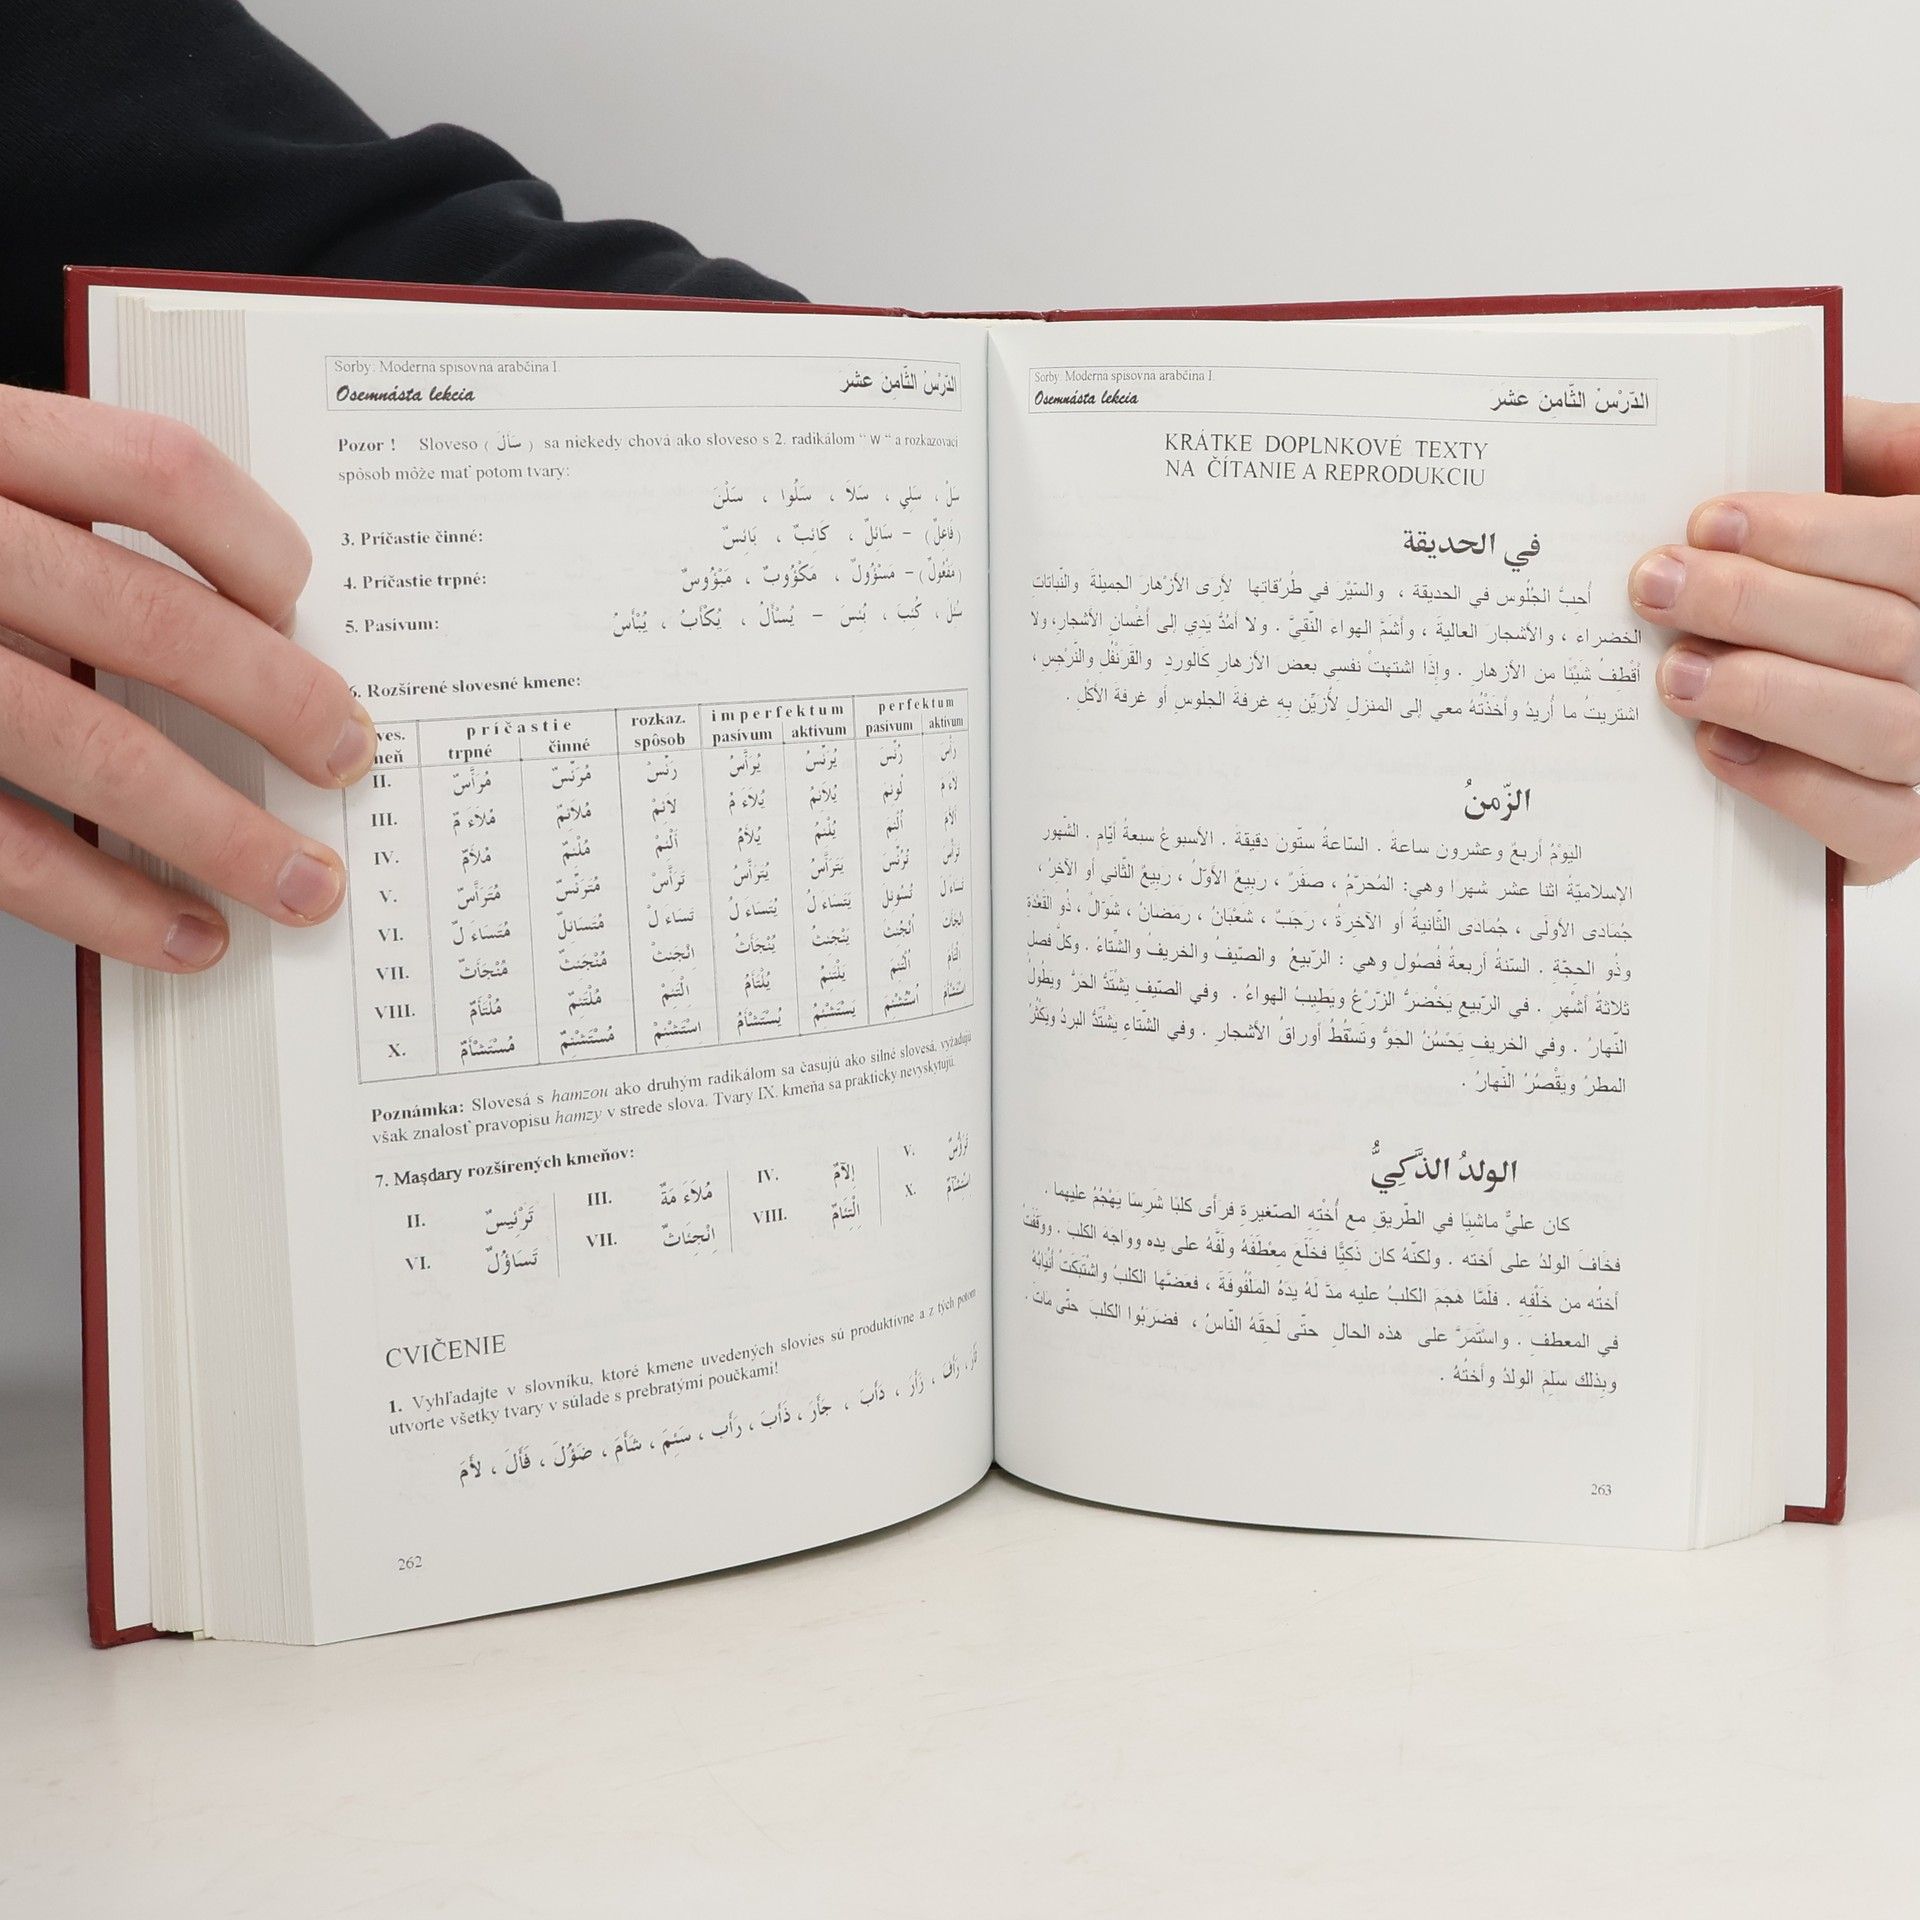 Sorby: Moderna spisovna arabčina I.
Osemnásta lekcia الدّرْسُ الثّامِنَ عشَرَ
Pozor ! Sloveso ( سَأَلَ ) sa niekedy chová ako sloveso s 2. radikálom “ W “ a rozkazovací
spôsob môže mať potom tvary:
سَلْ ، سَلِي ، سَلاَ ، سَلُوا ، سَلْنَ
3. Príčastie činné: (فَاعِلٌ) – سَائِلٌ ، كَائِبٌ ، بَائِسٌ
4. Príčastie trpné: (مَفْعُولٌ) – مَسْؤُولٌ ، مَكْؤُوبٌ ، مَبْؤُوسٌ
5. Pasívum: سُئِلَ ، كُئِبَ ، بُئِسَ – يُسْأَلُ ، يُكْأَبُ ، يُبْأَسُ
6. Rozšírené slovesné kmene:
príčastie rozkaz. imperfektum perfektum
trpné činné spôsob pasívum aktívum pasívum aktívum
II. مُرَأَّسٌ مُرَئِّسٌ رَئِّسْ يُرَأَّسُ يُرَئِّسُ رُئِّسَ رأّسَ
III. مُلاَءَ مٌ مُلاَئِمٌ لاَئِمْ يُلاَءَ مُ يُلاَئِمُ لُوئِمَ لاَءَ مَ
IV. مُلأَمٌ مُلْئِمٌ أَلْئِمْ يُلأَمُ يُلْئِمُ أُلْئِمَ أَلأَمَ
V. مُتَرَأَّسٌ مُتَرَئِّسٌ تَرَأَّسْ يُتَرَأَّسُ يَتَرَأَّسُ تُرُئِّسَ تَرأّسَ
VI. مُتَسَاءَ لٌ مُتَسَائِلٌ تَسَاءَ لْ يُتَسَاءَ لُ يَتَسَاءَ لُ تُسُوئِلَ تَسَاءَ لَ
VII. مُنْجَأَثٌ مُنْجَئِثٌ اِنْجَئِثْ يُنْجَأَثُ يَنْجَئِثُ اُنْجُئِثَ اِنْجَأَثَ
VIII. مُلْتَأَمٌ مُلْتَئِمٌ اِلْتَئِمْ يُلْتَأَمُ يَلْتَئِمُ اُلْتُئِمَ اِلْتَأَمَ
X. مُسْتَشْأَمٌ مُسْتَشْئِمٌ اِسْتَشْئِمْ يُسْتَشْأَمُ يَسْتَشْئِمُ اُسْتُشْئِمَ اِسْتَشْأَمَ
Poznámka: Slovesá s hamzou ako druhým radikálom sa časujú ako silné slovesá, vyžadujú
však znalosť pravopisu hamzy v strede slova. Tvary IX. kmeňa sa prakticky nevyskytujú.
7. Maṣdary rozšírených kmeňov:
II. تَرْئِيسٌ III. مُلاَءَ مَةٌ IV. إِلآمٌ V. تَرَؤُّسٌ
VI. تَسَاؤُلٌ VII. اِنْجِئَاثٌ VIII. اِلْتِئَامٌ X. اِسْتِشْآمٌ
CVIČENIE
1. Vyhľadajte v slovníku, ktoré kmene uvedených slovies sú produktívne a z tých potom
utvorte všetky tvary v súlade s prebratými poučkami!
رَأَفَ ، زَأَرَ ، دَأَبَ ، جَأَرَ ، ذَأَبَ ، رَأَب ، سَئِمَ ، شَأَمَ ، ضَؤُلَ ، فَأَلَ ، لأَمَ
262
Sorby: Moderna spisovna arabčina I.
Osemnásta lekcia الدّرْسُ الثّامِنَ عشَرَ
KRÁTKE DOPLNKOVÉ TEXTY
NA ČÍTANIE A REPRODUKCIU
في الحديقة
أُحِبَّ الجُلُوس في الحديقة ، والسّيْرَ في طُرُقاتها لأِرى الأزْهارَ الجميلةَ والنّباتاتِ
الخضراءَ ، والأشجارَ العاليةَ ، وأشمّ الهواء النّقِيَّ . ولا أمُدُّ يَدِي إلى أغْسانِ الأشجارِ، ولا
أقْطِفُ شَيْئًا من الأزهارِ . وإذَا اشتهتْ نفسِي بعضَ الأزهارِ كَالوردِ والقَرَنْفُلِ والنّرْجِسِ ،
اشتريتُ ما أُريدُ وأخَذْتُهُ معي إلى المنزلِ لأُزيِّنَ بِهِ غرفةَ الجلوسِ أو غرفةَ الأَكْلِ .
الزّمنُ
اليَوْمُ أربعٌ وعشرون ساعةً . السّاعةُ ستّونَ دقيقةً . الأسبوعُ سبعةُ أيّامٍ . الشّهور
الإسلاميّةُ اثنا عشر شهرًا وهي: المُحرّمُ ، صفَرٌ ، ربيعٌ الأوّلُ ، ربيعٌ الثّاني أو الآخِرُ ،
جُمادَى الأولَى ، جُمادَى الثّانيةُ أو الآخِرةُ ، رَجَبٌ ، شَعْبَانُ ، رمَضانُ ، شوّالٌ ، ذُو القَعْدَةِ
وذُو الحِجّةِ . السّنةُ أربعةُ فصُولٍ وهي : الرّبيعُ والصّيفُ والخريفُ والشّتاءُ . وكلّ فصلٍ
ثلاثةُ أشْهرٍ . في الرّبيعِ يَخْضَرُّ الزّرْعُ ويَطِيبُ الهواءُ . وفي الصّيفِ يشْتَدُّ الحَرُّ ويَطُولُ
النّهارُ . وفي الخريفِ يَحْسُنُ الجَوُّ وتَسْقُطُ أوراقُ الأشجارِ . وفي الشّتاءِ يشْتَدُّ البردُ ويَكْثُرُ
المطرُ ويَقْصُرُ النّهارُ .
الولدُ الذَّكِيُّ
كان عليٌّ ماشيًا في الطّريقِ مع أُخْتِهِ الصّغيرةِ فرَأى كلبًا شَرِسًا يَهْجُمُ عليهما .
فخَافَ الولدُ على أخته . ولكنّهُ كان ذَكيًّا فخَلَعَ مِعْطَفَهُ ولَفَّهُ على يده وواجَهَ الكلبَ . ووقَفَتْ
أختُه من خَلْفِهِ . فلَمَّا هَجَمَ الكلبُ عليه مدَّ لهُ يدَهُ المَلْفُوفَةَ ، فعَضّها الكلبُ واشْتَبَكَتْ أنْيابُهُ
في المعطفِ . واسْتَمَرَّ على هذه الحالِ حتّى لَحِقَهُ النّاسُ ، فضَرَبُوا الكلبَ حتّى ماتَ .
وبِذلك سلِمَ الولدُ وأختُهُ .
263